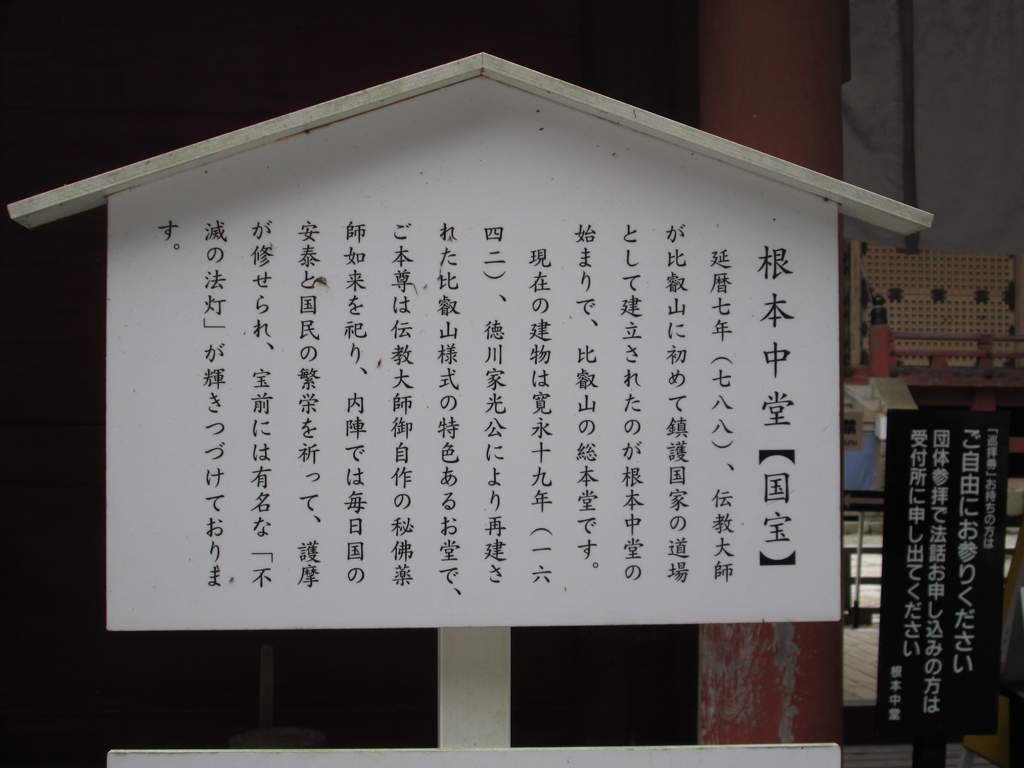 根本中堂【国宝】
延暦七年（七八八）、伝教大師
が比叡山に初めて鎮護国家の道場
として建立されたのが根本中堂の
始まりで、比叡山の総本堂です。
現在の建物は寛永十九年（一六
四二）、徳川家光公により再建さ
れた比叡山様式の特色あるお堂で、
ご本尊は伝教大師御自作の秘佛薬
師如来を祀り、内陣では毎日国の
安泰と国民の繁栄を祈って、護摩
が修せられ、宝前には有名な「不
滅の法灯」が輝きつづけておりま
す。
「巡拝券」お持ちの方は
ご自由にお参りください
団体参拝で法話お申し込みの方は
受付所に申し出てください
根本中堂